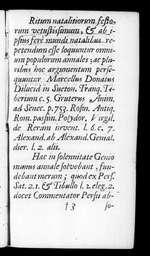 Ritum natalitiorum festo-
rum vetustissimum, & ab i-
psius ferè mundi natalibus re-
petendum esse loquuntur omni-
um populorum annales; ac plu-
ribus hoc argumentum perse-
quuntur Marcellus Donatus
Dilucid in Sueton. Tranq. Ti-
berium c. 5. Gruterus Anim.
ad Senec. p. 753. Rosin. Antiq.
Rom. passim. Polydor. Virgil.
de Rerum invent. l. 6. c. 7.
Alexand. ab Alexand. Genial.
dier. l. 2. alii.
Hac in solemnitate Genio
munus annale solvebant, fun-
debant merum; quod ex Pers.
Sat. 2. 1. & Tibullo l. 2. eleg. 2.
docet Commentator Persii ab-
† 3 so-